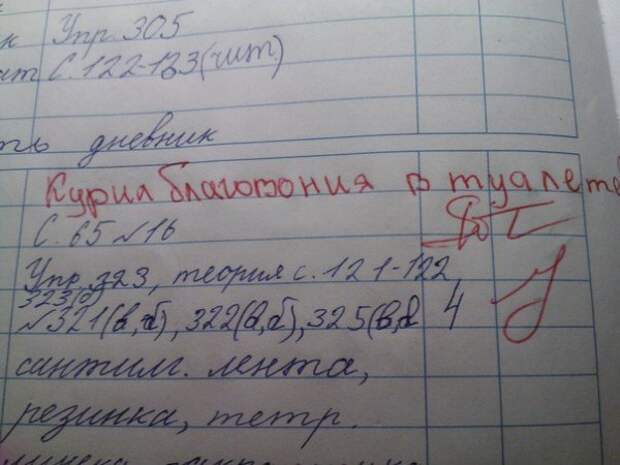 Упр. 305
С. 122-123 (чит.)
дневник
Курил благовония в туалете
С. 65 №16
Упр. 323, теория с. 121-122
323(б)
№321(в,б), 322(в,б), 325(в,б 4
сантим. лента,
резинка, тетр.